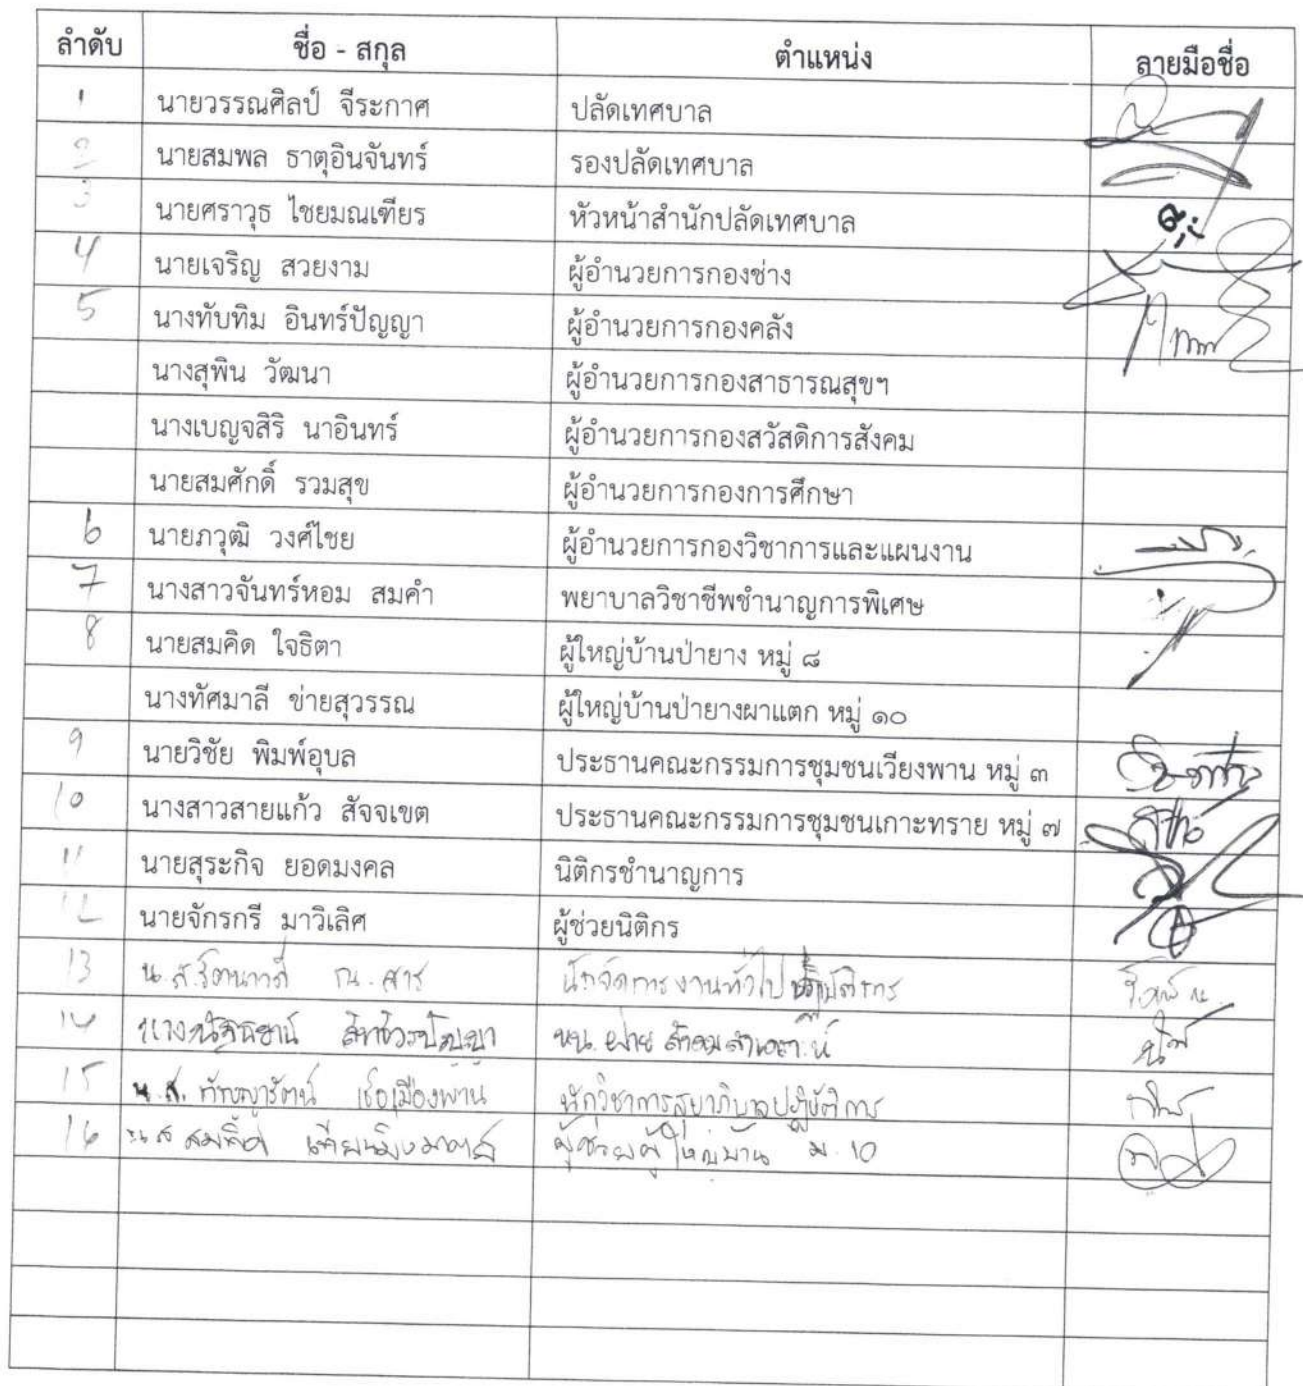 ลำดับ ชื่อ - สกุล ตำแหน่ง ลายมือชื่อ
1 นายวรรณศิลป์ จีระกาศ ปลัดเทศบาล
2 นายสมพล ธาตุอินจันทร์ รองปลัดเทศบาล
3 นายศราวุธ ไชยมณเฑียร หัวหน้าสำนักปลัดเทศบาล
4 นายเจริญ สวยงาม ผู้อำนวยการกองช่าง
5 นางทับทิม อินทร์ปัญญา ผู้อำนวยการกองคลัง
นางสุพิน วัฒนา ผู้อำนวยการกองสาธารณสุขฯ
นางเบญจสิริ นาอินทร์ ผู้อำนวยการกองสวัสดิการสังคม
นายสมศักดิ์ รวมสุข ผู้อำนวยการกองการศึกษา
6 นายภวุฒิ วงศ์ไชย ผู้อำนวยการกองวิชาการและแผนงาน
7 นางสาวจันทร์หอม สมคำ พยาบาลวิชาชีพชำนาญการพิเศษ
8 นายสมคิด ใจธิตา ผู้ใหญ่บ้านป่ายาง หมู่ ๘
นางทัศมาลี ข่ายสุวรรณ ผู้ใหญ่บ้านป่ายางผาแตก หมู่ ๑๐
9 นายวิชัย พิมพ์อุบล ประธานคณะกรรมการชุมชนเวียงพาน หมู่ ๓
10 นางสาวสายแก้ว สัจจเขต ประธานคณะกรรมการชุมชนเกาะทราย หมู่ ๗
11 นายสุระกิจ ยอดมงคล นิติกรชำนาญการ
12 นายจักรกรี มาวิเลิศ ผู้ช่วยนิติกร
13 น.ส. นักจัดการงานทั่วไป
14 นาง หน. ฝ่าย สังคมสงเคราะห์
15 น.ส. นักวิชาการสุขาภิบาลปฏิบัติการ
16 น.ส ผู้ช่วยผู้ใหญ่บ้าน ม. 10